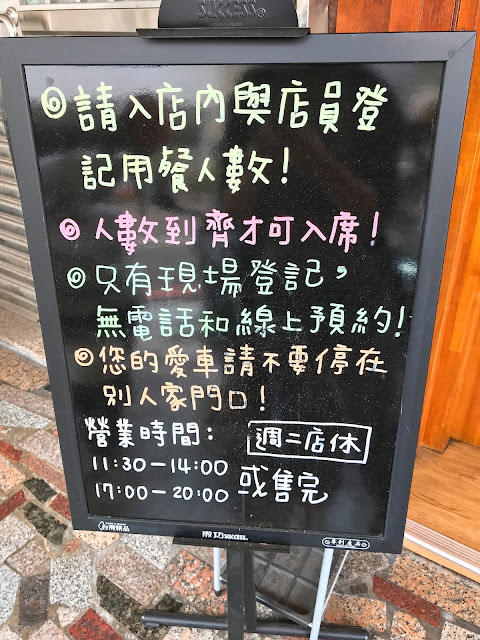 SUCCESS
◎請入店內與店員登
記用餐人數!
◎人數到齊才可入席!
◎只有現場登記,
無電話和線上預約!
◎您的愛車請不要停在
別人家門口!
營業時間:
週二店休
11:30-14:00
17:00-20:00
或售完
台灣精品
成功 SUCCESS